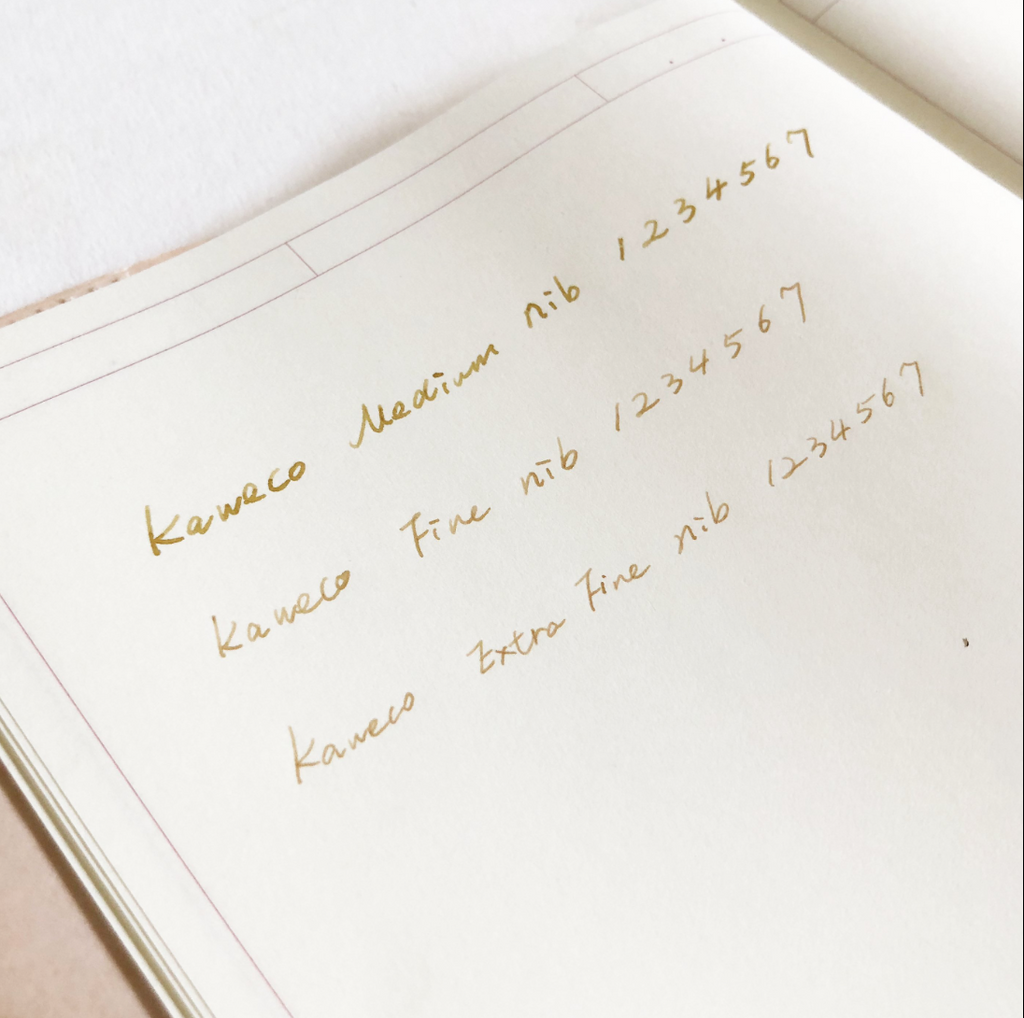 Kaweco Medium nib 1234567
Kaweco Fine nib 1234567
Kaweco Extra Fine nib 1234567